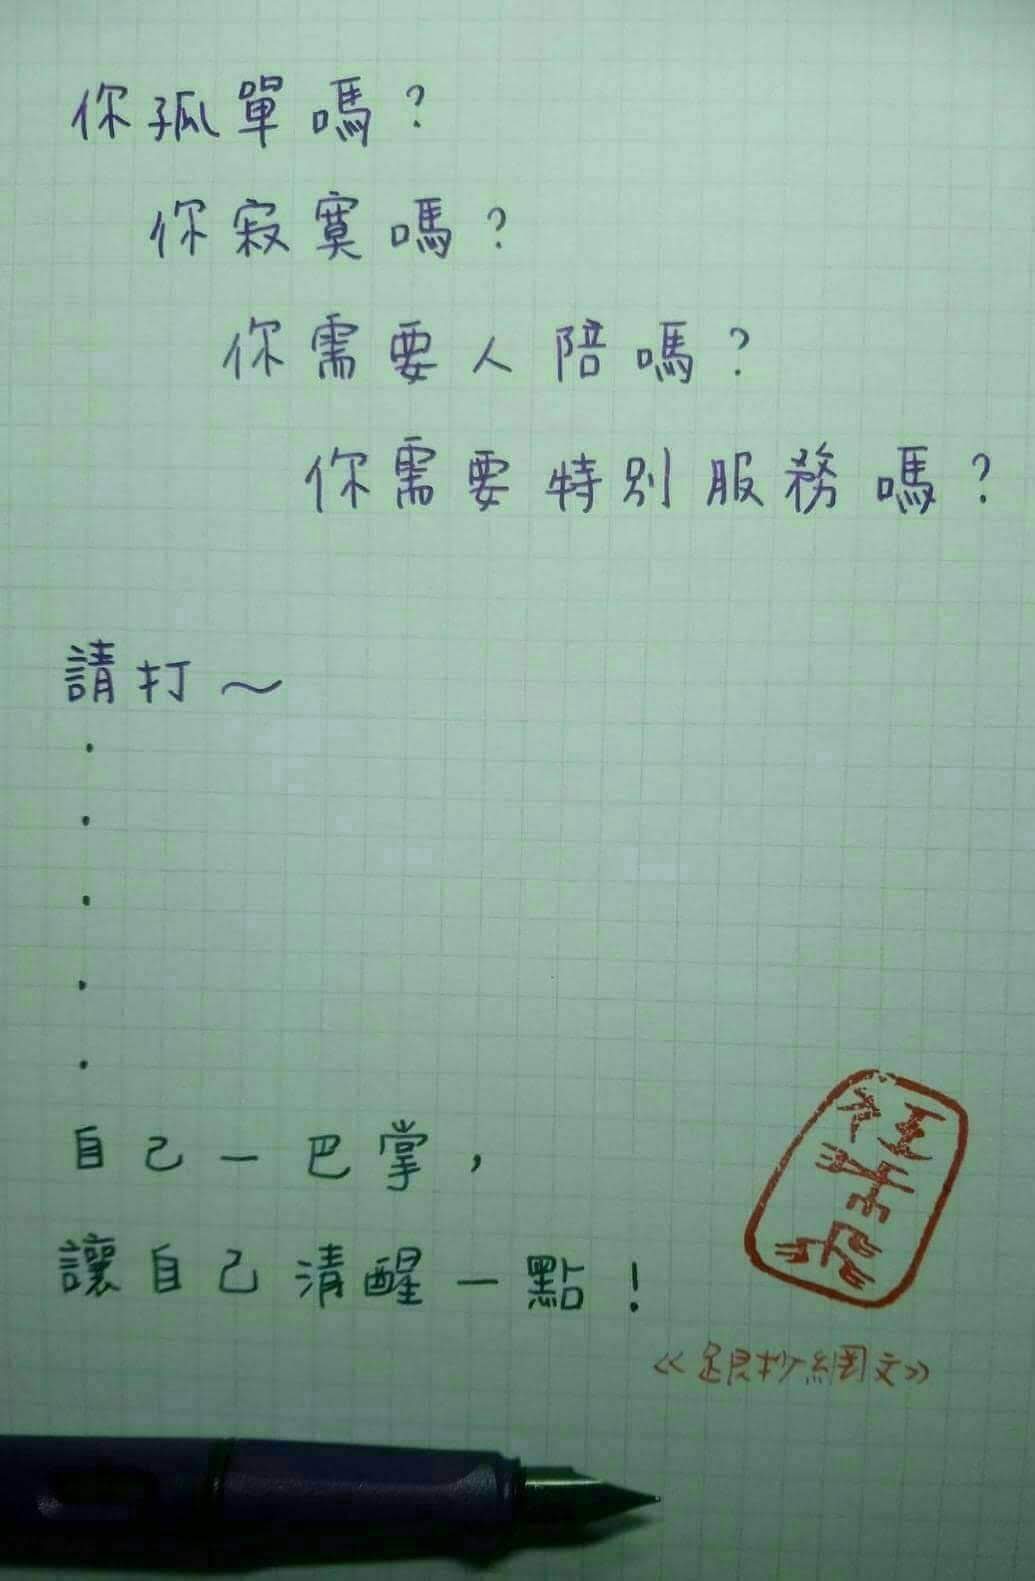 你孤單嗎？
你寂寞嗎？
你需要人陪嗎？
你需要特別服務嗎？
請打～
.
.
.
.
.
自己一巴掌，
讓自己清醒一點！
《跟抄網文》